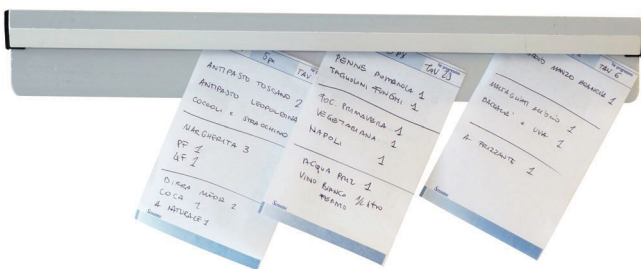 5 px
TAV
ANTIPASTO TOSCANO 2
ANTIPASTO LEOPOLDINA
COCCOLI e STRACCHINO
MARGHERITA 3
PF 1
4F 1
BIRRA MEDIA 2
COCA 1
A NATURALE 1
px
TAV 23
PENNE BOSCAIOLA 1
TAGLIOLINI FUNGHI 1
FOC. PRIMAVERA 1
VEGETARIANA 1
NAPOLI 1
ACQUA FRIZ 1
VINO BIANCO 1/2 litro
FERMO
TAV 6
MANZO ARANCIA 1
MALTAGLIATI 1
BACCALA' e UVA 1
A. FRIZZANTE 1